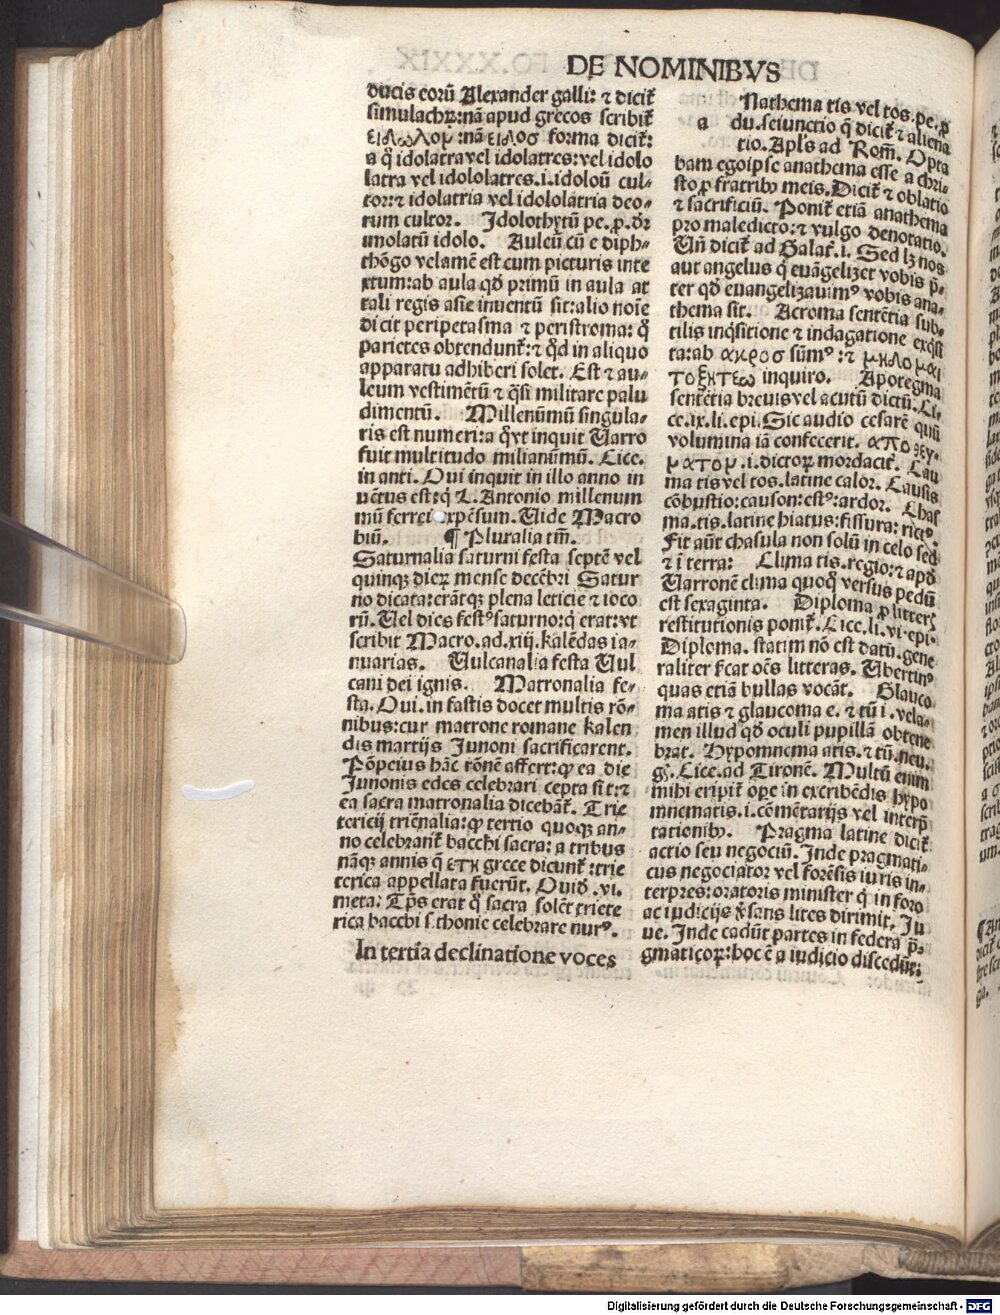 DE NOMINIBVS
ducis eorū Alexander galli: ⁊ dicit᷑
simulachꝝ: nā apud grecos scribit᷑
ειδωλον: nā ειδοσ forma dicit᷑:
a q̄ idolatra vel idolatres: vel idolo
latra vel idololatres .i. idoloū cul-
tor: ⁊ idolatria vel idololatria deo-
rum cultor. Idolothytū pe. ꝓ. dr̄
imolatū idolo. Auleū cū e diph-
thōgo velamē est cum picturis inte
xtum: ab aula qd̄ primū in aula at
tali regis asie inuentū sit: alio noīe
dicit peripetasma ⁊ peristroma: q̄
parietes obtendunt᷑: ⁊ qd̄ in aliquo
apparatu adhiberi solet. Est ⁊ au-
leum vestimētū ⁊ q̄si militare palu
dimentū. Millenūmū singula-
ris est numeri: a q̄ vt inquit Varro
fuit multitudo milianūmū. Cice.
in anti. Qui inquit in illo anno in
uētus est: q̄ L. Antonio millenum
mū ferrei expēsum. Vide Macro
biū. ¶ Pluralia tm̄.
Saturnalia saturni festa septē vel
quinqꝫ dieꝝ mense decēbri Satur
no dicata: erātqꝫ plena leticie ⁊ ioco
rū. Vel dies festꝰ saturno: q̄ erat: vt
scribit Macro. ad .xiij. kalēdas ia-
nuarias. Vulcanalia festa Vul
cani dei ignis. Matronalia fe-
sta. Oui. in fastis docet multis rō-
nibus: cur matrone romane kalen
dis martijs Junoni sacrificarent.
Pōpeius hāc rōnē affert: ꝙ ea die
Junonis edes celebrari cepta sit: ⁊
ea sacra matronalia dicebāt᷑. Trie
tericij triēnalia: ꝙ tertio quoqꝫ an-
no celebrant᷑ bacchi sacra: a tribus
nāqꝫ annis q̄ ετη grece dicunt᷑: trie
terica appellata fuerūt. Ouid̄ .vi.
meta: Tp̄s erat q̄ sacra solēt triete
rica bacchi sithonie celebrare nurꝰ.
In tertia declinatione voces
a Nathema tis vel tos. pe. ꝓ
du. seiunctio q̄ dicit᷑ ⁊ aliena
tio. Apl's ad Rom̄. Opta
bam ego ipse anathema esse a chri-
sto ꝓ fratribꝫ meis. Dicit᷑ ⁊ oblatio
⁊ sacrificiū. Ponit᷑ etiā anathema
pro maledicto: ⁊ vulgo denotatio.
Vn̄ dicit᷑ ad Galat᷑ .i. Sed lꝫ nos
aut angelus q̄ euāgelizet vobis p̄-
ter qd̄ euangelizauimꝰ vobis ana-
thema sit. Acroma sentētia sub-
tilis inq̄sitione ⁊ indagatione exq̄si
ta: ab ακροσ sūmꝰ: ⁊
inquiro. Apotegma
sentētia breuis vel acutū dictū. Ci-
ce. ix. li. epi. Sic audio cesarē quū
volumina iā confecerit. αποθεγ-
ματον .i. dictoꝝ mordaciū. Cau
ma tis vel tos. latine calor. Causis
cōbustio: causon: estꝰ: ardor. Chas
ma. tis. latine hiatus: fissura: rictꝰ.
Fit aūt chasula non solū in celo sed
⁊ ī terra: Clima tis. regio: ⁊ apd̄
Varronē clima quoqꝫ versus pedū
est sexaginta. Diploma ꝓ litteris
restitutionis ponit᷑. Cice. li. vi. epi.
Diploma. statim nō est datū. gene
raliter s̄cat oēs litteras. Vbertinꝰ
quas etiā bullas vocāt. Glauco
ma atis ⁊ glaucoma e. ⁊ tū i. vela-
men illud qd̄ oculi pupillā obtene
brat. Hypomnema atis. ⁊ tū. neu.
gꝫ. Cice. ad Tironē. Multū enim
mihi eripit᷑ ope in excribēdis hypo
mnematis .i. cōmētarijs vel interp̄
tationibꝫ. Pragma latine dicit᷑
actio seu negociū. Inde pragmati-
cus negociator vel forēsis iuris in-
terpres: oratoris minister q̄ in foro
ac iudicijs lites dirimit. Ju
ue. Inde cadūt partes in federa p̄g
gmaticoꝝ: hoc ē a iudicio discedūt:
Digitalisierung gefördert durch die Deutsche Forschungsgemeinschaft - DFG